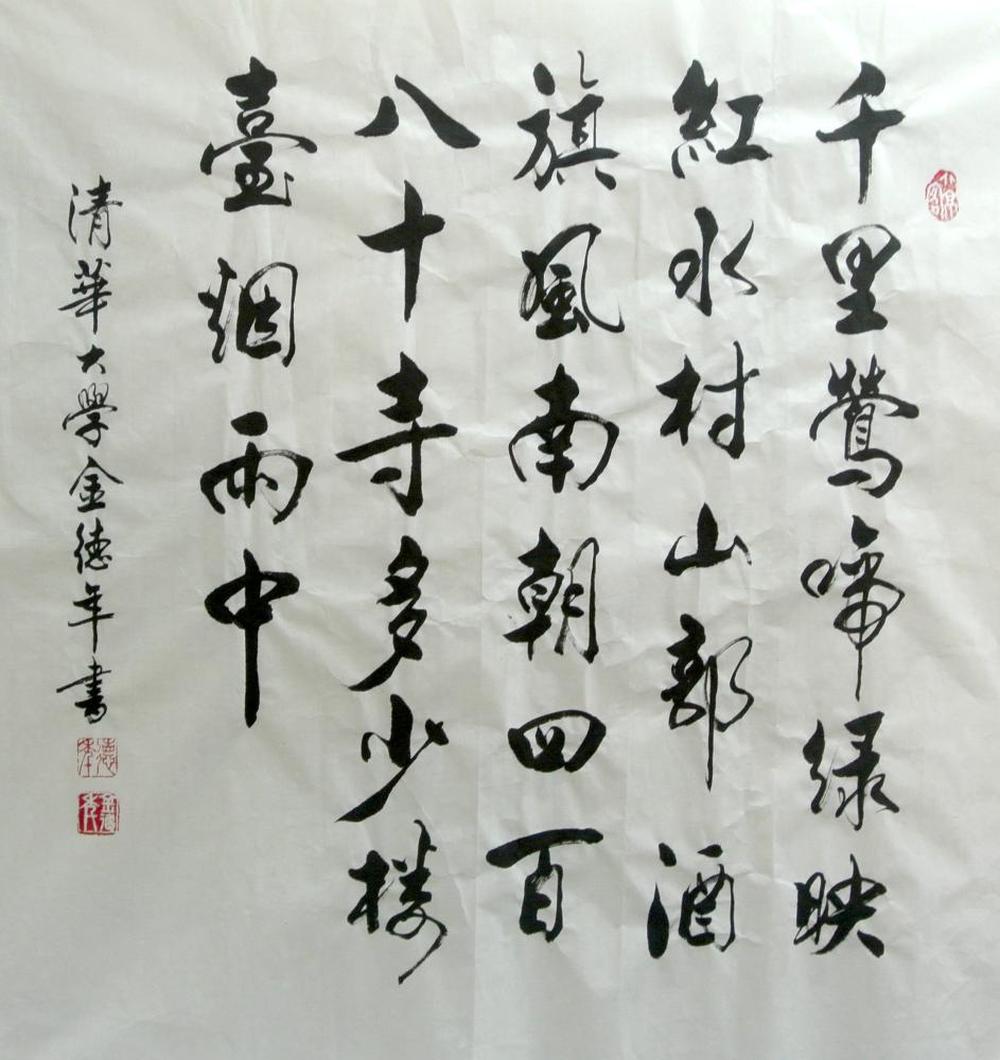 千里鶯啼绿映
紅水村山郭酒
旗風南朝四百
八十寺多少楼
臺烟雨中
清華大学金德年書